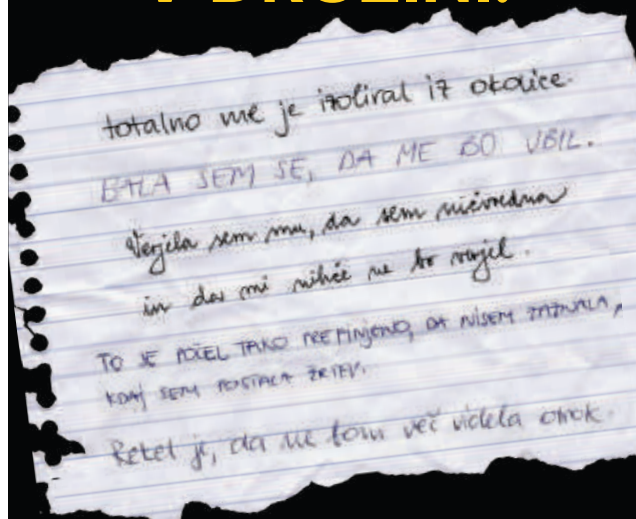 V DRUŽINI?
totalno me je izoliral iz okolice.
BALA SEM SE, DA ME BO UBIL.
Verjela sem mu, da sem ničvredna
in da mi nihče ne bo verjel.
TO JE POČEL TAKO PREFINJENO, DA NISEM ZAZNALA,
KDAJ SEM POSTALA ŽRTEV.
Rekel je, da ne bom več videla otrok.